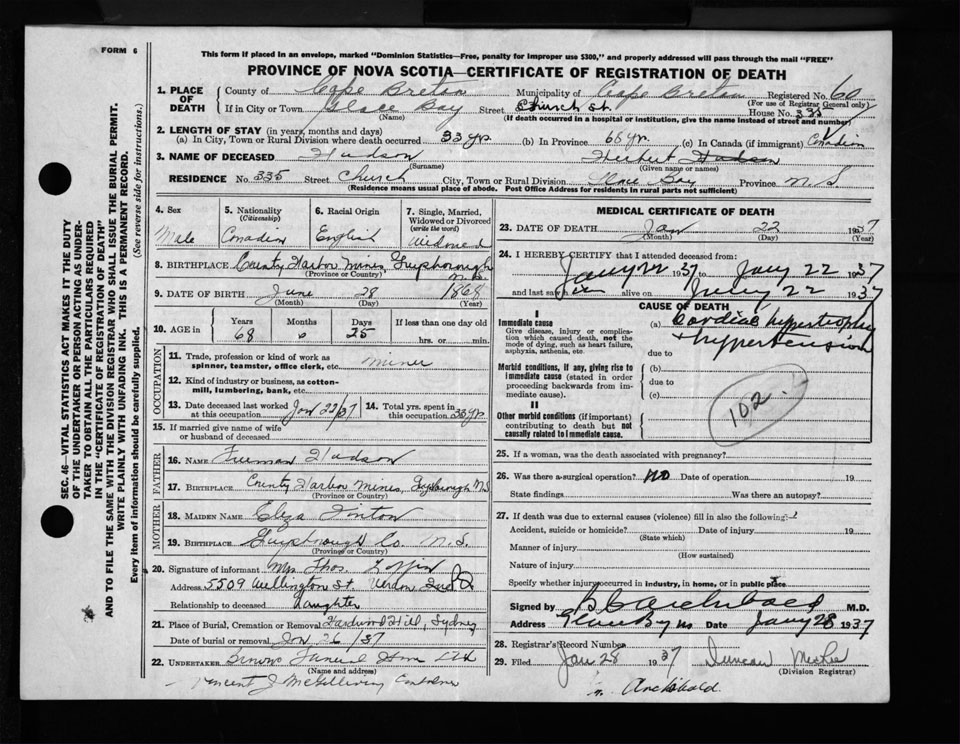 FORM 6
This form if placed in an envelope, marked "Dominion Statistics—Free, penalty for improper use $300," and properly addressed will pass through the mail "FREE"
PROVINCE OF NOVA SCOTIA—CERTIFICATE OF REGISTRATION OF DEATH
SEC. 46—VITAL STATISTICS ACT MAKES IT THE DUTY
OF THE UNDERTAKER OR PERSON ACTING AS UNDER-
TAKER TO OBTAIN ALL THE PARTICULARS REQUIRED
IN THE "CERTIFICATE OF REGISTRATION OF DEATH"
AND TO FILE THE SAME WITH THE DIVISION REGISTRAR WHO SHALL ISSUE THE BURIAL PERMIT.
WRITE PLAINLY WITH UNFADING INK. THIS IS A PERMANENT RECORD.
Every item of information should be carefully supplied. (See reverse side for instructions.)
1. PLACE OF DEATH County of Cape Breton Municipality of Cape Breton Registered No. 60
(For use of Registrar General only)
If in City or Town Glace Bay Street Church St. House No. 335
(Name) (If death occurred in a hospital or institution, give the name instead of street and number)
2. LENGTH OF STAY (in years, months and days)
(a) In City, Town or Rural Division where death occurred 33 yrs (b) In Province 68 yr. (c) In Canada (if immigrant) Canadian
3. NAME OF DECEASED Hudson Herbert Hudson
(Surname) (Given name or names)
RESIDENCE No. 335 Street Church City, Town or Rural Division Glace Bay Province N.S.
(Residence means usual place of abode. Post Office Address for Residents in rural parts not sufficient)
4. Sex Male
5. Nationality (Citizenship) Canadian
6. Racial Origin English
7. Single, Married, Widowed or Divorced (write the word) Widowed
8. BIRTHPLACE County Harbor Mines, Guysborough N.S.
(Province or Country)
9. DATE OF BIRTH June 28 1868
(Month) (Day) (Year)
10. AGE in Years 68 Months 6 Days 25 If less than one day old
hrs. or min.
OCCUPATION
11. Trade, profession or kind of work as spinner, teamster, office clerk, etc. Miner
12. Kind of industry or business, as cotton-mill, lumbering, bank, etc.
13. Date deceased last worked at this occupation Jan 22/37
14. Total yrs. spent in this occupation 33 yr.
15. If married give name of wife or husband of deceased
FATHER
16. NAME Freeman Hudson
17. BIRTHPLACE County Harbor Mines, Guysborough N.S.
(Province or Country)
MOTHER
18. MAIDEN NAME Eliza
19. BIRTHPLACE Guysborough Co. N.S.
(Province or Country)
20. Signature of informant Mrs Thos.
Address 5509 Wellington St Verdun
Relationship to deceased Daughter
21. Place of Burial, Cremation or Removal Hardwood Hill, Sydney
Date of burial or removal Jan 26/37
22. UNDERTAKER Browns Funeral Home Ltd
(Name and address)
Vincent J McGillivray
MEDICAL CERTIFICATE OF DEATH
23. DATE OF DEATH Jan 22 1937
(Month) (Day) (Year)
24. I HEREBY CERTIFY that I attended deceased from:
Jany 22 1937 to Jany 22 1937
and last saw him alive on Jany 22 1937
CAUSE OF DEATH
I
Immediate cause
Give disease, injury or complication which caused death, not the mode of dying, such as heart failure, asphyxia, asthenia, etc.
(a) Cardiac hypertrophy
+ hypertension
due to
Morbid conditions, if any, giving rise to immediate cause (stated in order proceeding backwards from immediate cause).
(b)
due to
(c)
102
II
Other morbid conditions (if important) contributing to death but not causally related to immediate cause.
25. If a woman, was the death associated with pregnancy?
26. Was there a surgical operation? NO Date of operation 19
State findings Was there an autopsy?
27. If death was due to external causes (violence) fill in also the following:
Accident, suicide or homicide? Date of injury 19
(State which)
Manner of injury
(How sustained)
Nature of injury
Specify whether injury occurred in industry, in home, or in public place
Signed by Archibald M.D.
Address Glace Bay NS Date Jany 28 1937
28. Registrar's Record Number
29. Filed Jan 28 1937 Duncan
(Division Registrar)
Archibald.